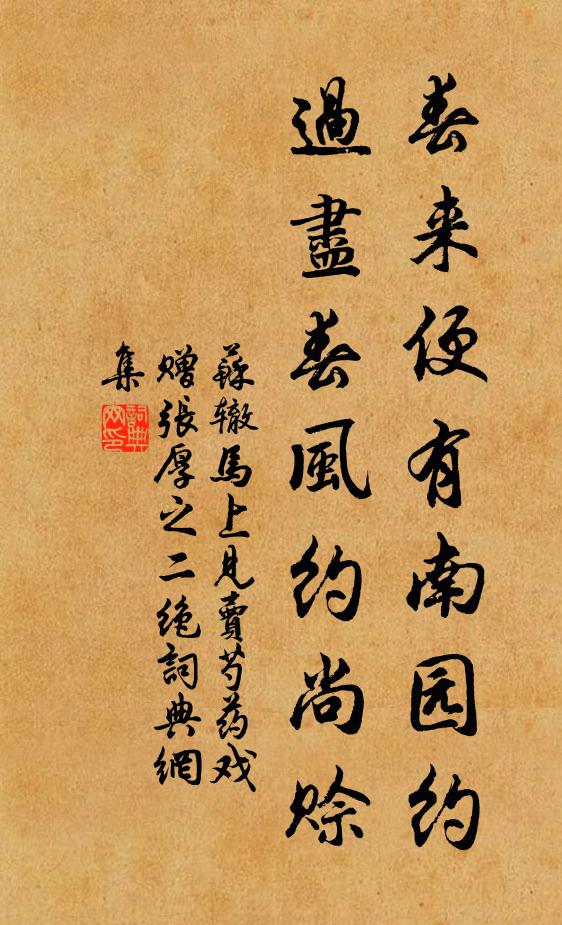 春来便有南园约
過盡春風約尚賒
蘇辙馬上見賣芍药戏
赠張厚之二絶詞典網
集
詞典